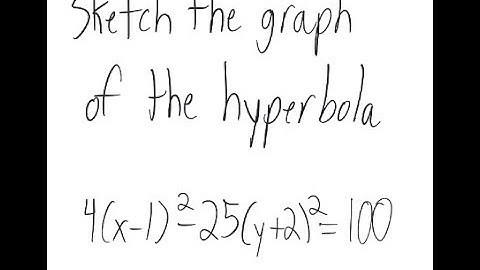 Sketch the graph
of the hyperbola
4(x-1)²-25(y+2)²=100